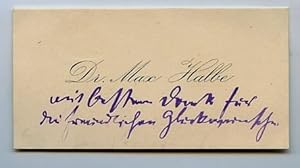 Dr. Max Halbe
mit bestem Dank für
die freundlichen Glückwünsche